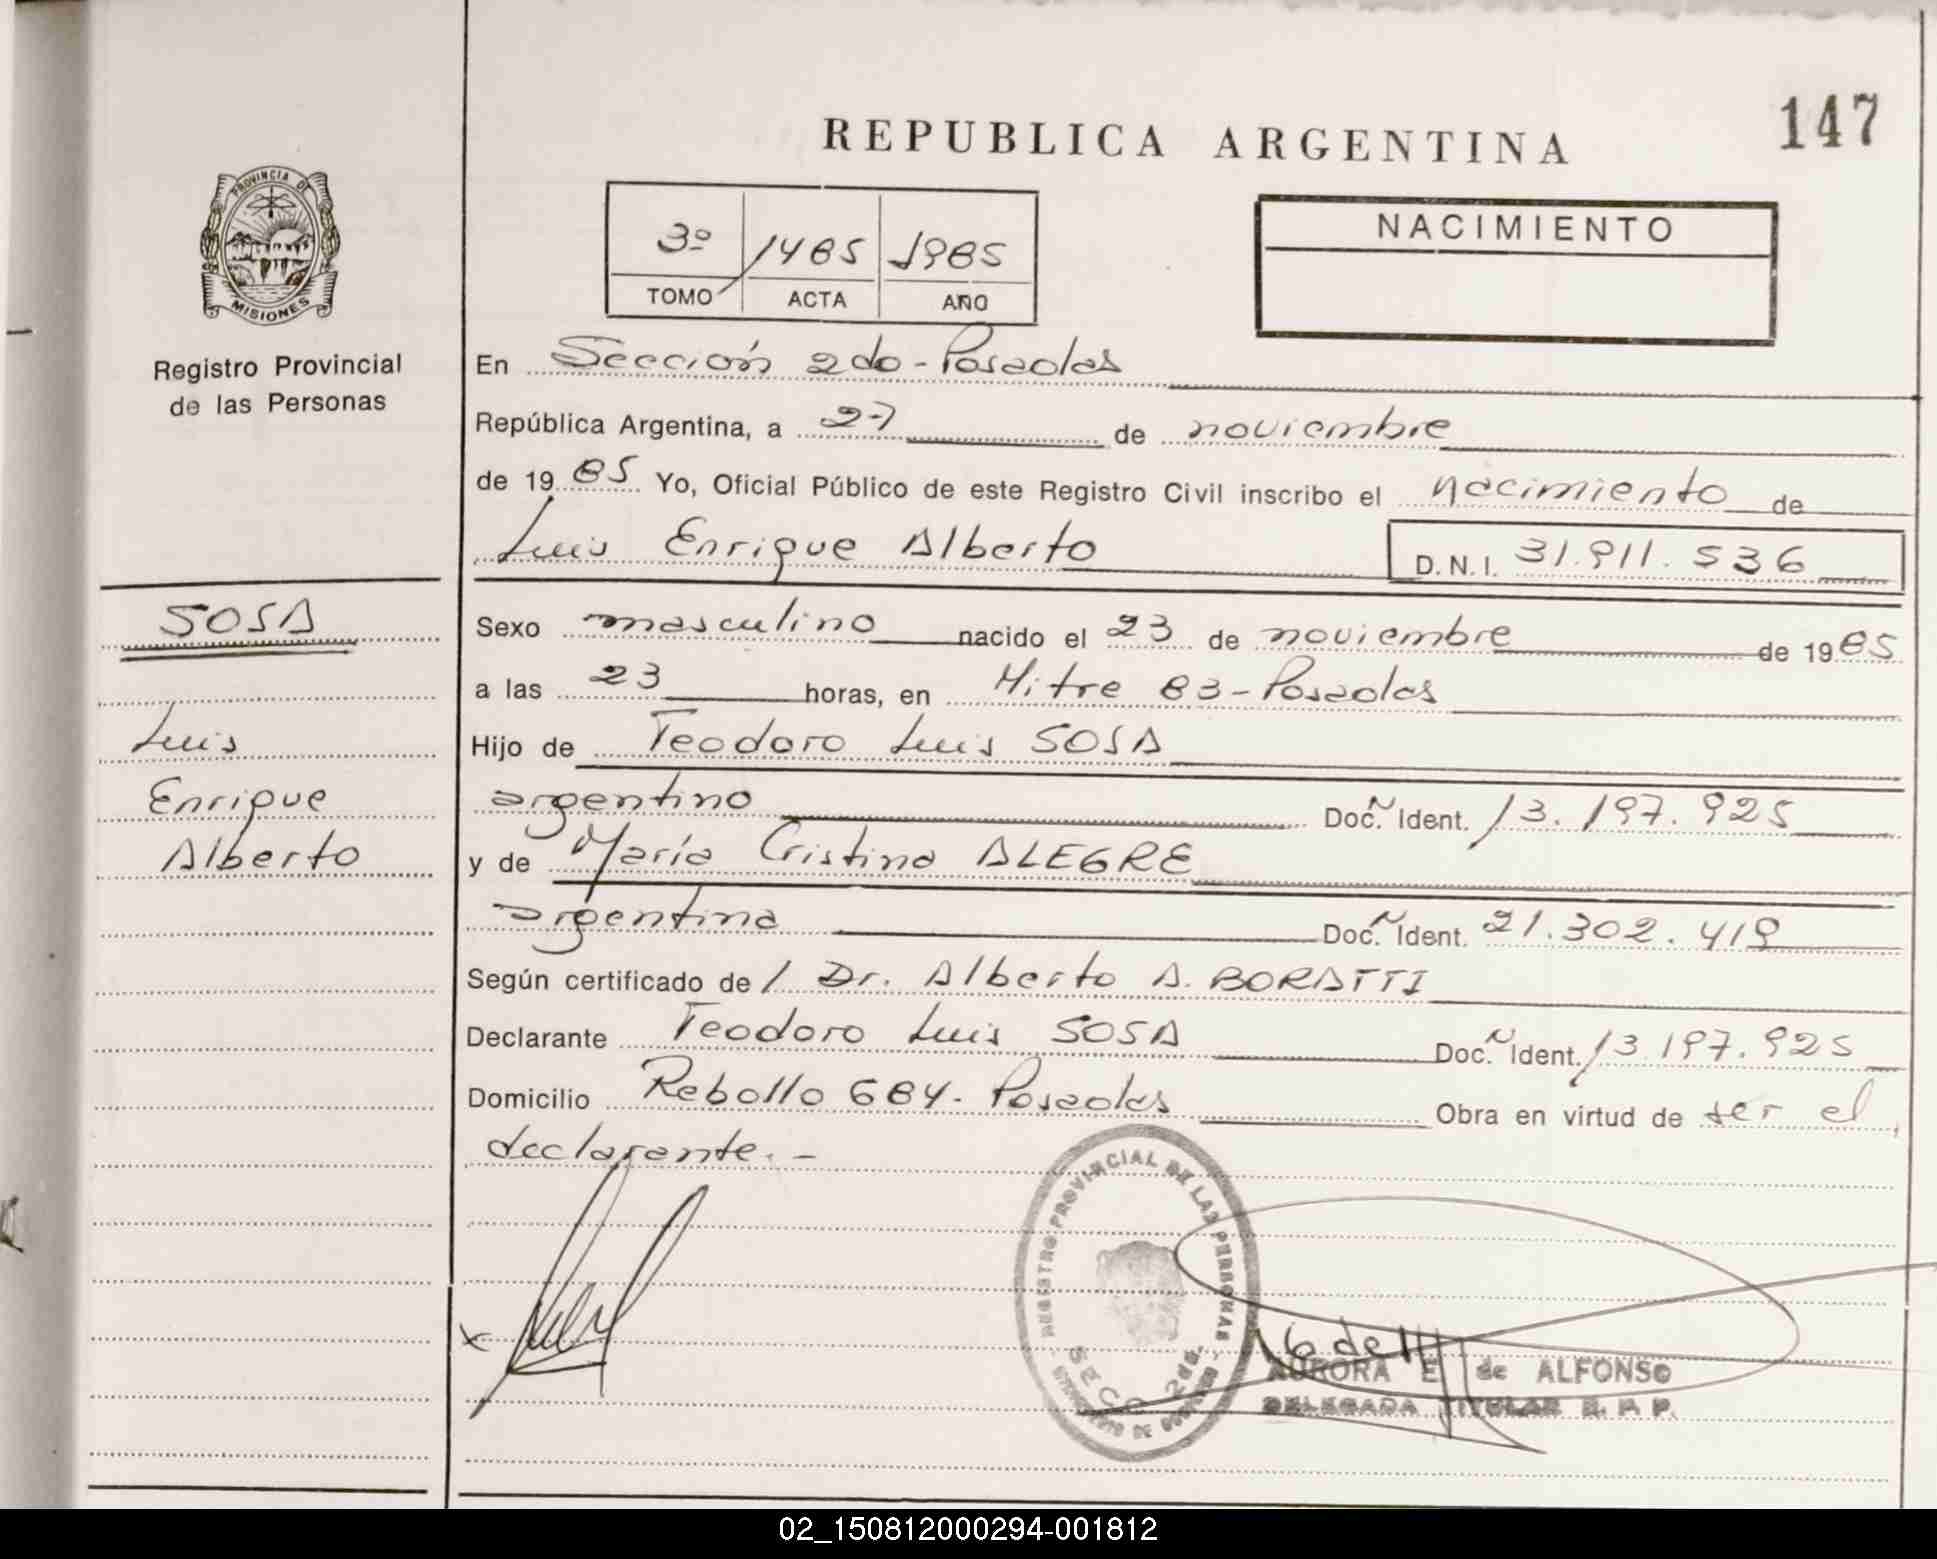 147
REPUBLICA ARGENTINA
PROVINCIA DE
MISIONES
Registro Provincial
de las Personas
3º 1485 1985
TOMO ACTA AÑO
NACIMIENTO
En Sección 2da - Posadas
República Argentina, a 27 de noviembre
de 1985 Yo, Oficial Público de este Registro Civil inscribo el nacimiento de
Luis Enrique Alberto D.N.I. 31.911.536
SOSA
Luis
Enrique
Alberto
Sexo masculino nacido el 23 de noviembre de 1985
a las 23 horas, en Mitre 83 - Posadas
Hijo de Teodoro Luis SOSA
argentino Doc. Ident. 13.197.925
y de María Cristina ALEGRE
argentina Doc. Ident. 21.302.419
Según certificado de / Dr. Alberto A. BORATTI
Declarante Teodoro Luis SOSA Doc. Ident. 13.197.925
Domicilio Rebollo 684 - Posadas Obra en virtud de ser el
declarante. -
REGISTRO PROVINCIAL DE LAS PERSONAS
SECC. 2da.
AURORA E de ALFONSO
DELEGADA TITULAR R. P. P.
02_150812000294-001812